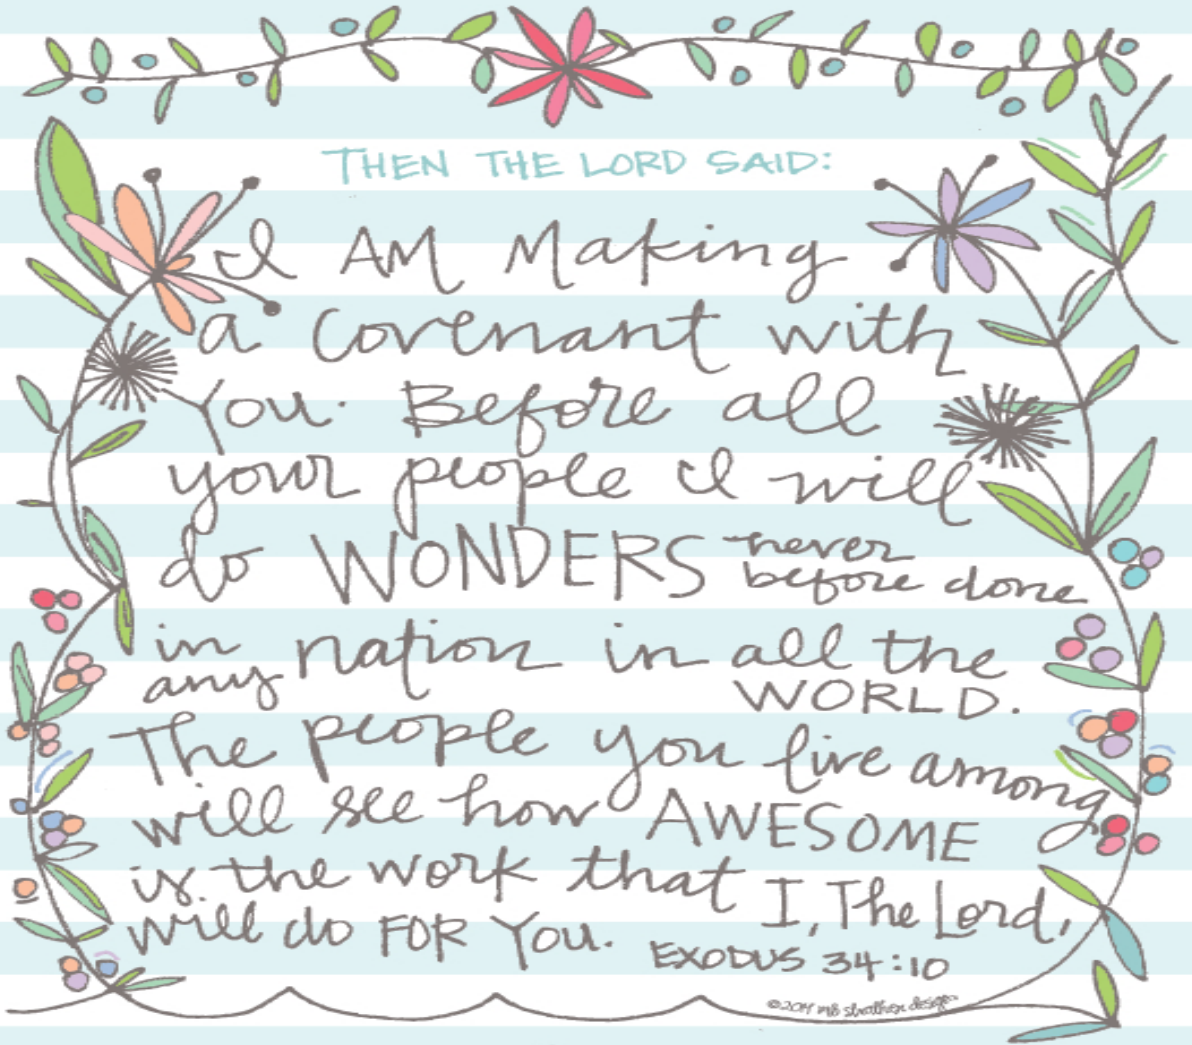 THEN THE LORD SAID:
I AM Making
a covenant with
You. Before all
your people I will
do WONDERS never before done
in any nation in all the WORLD.
The people you live among
will see how AWESOME
is the work that I, The Lord,
will do FOR You.
EXODUS 34:10